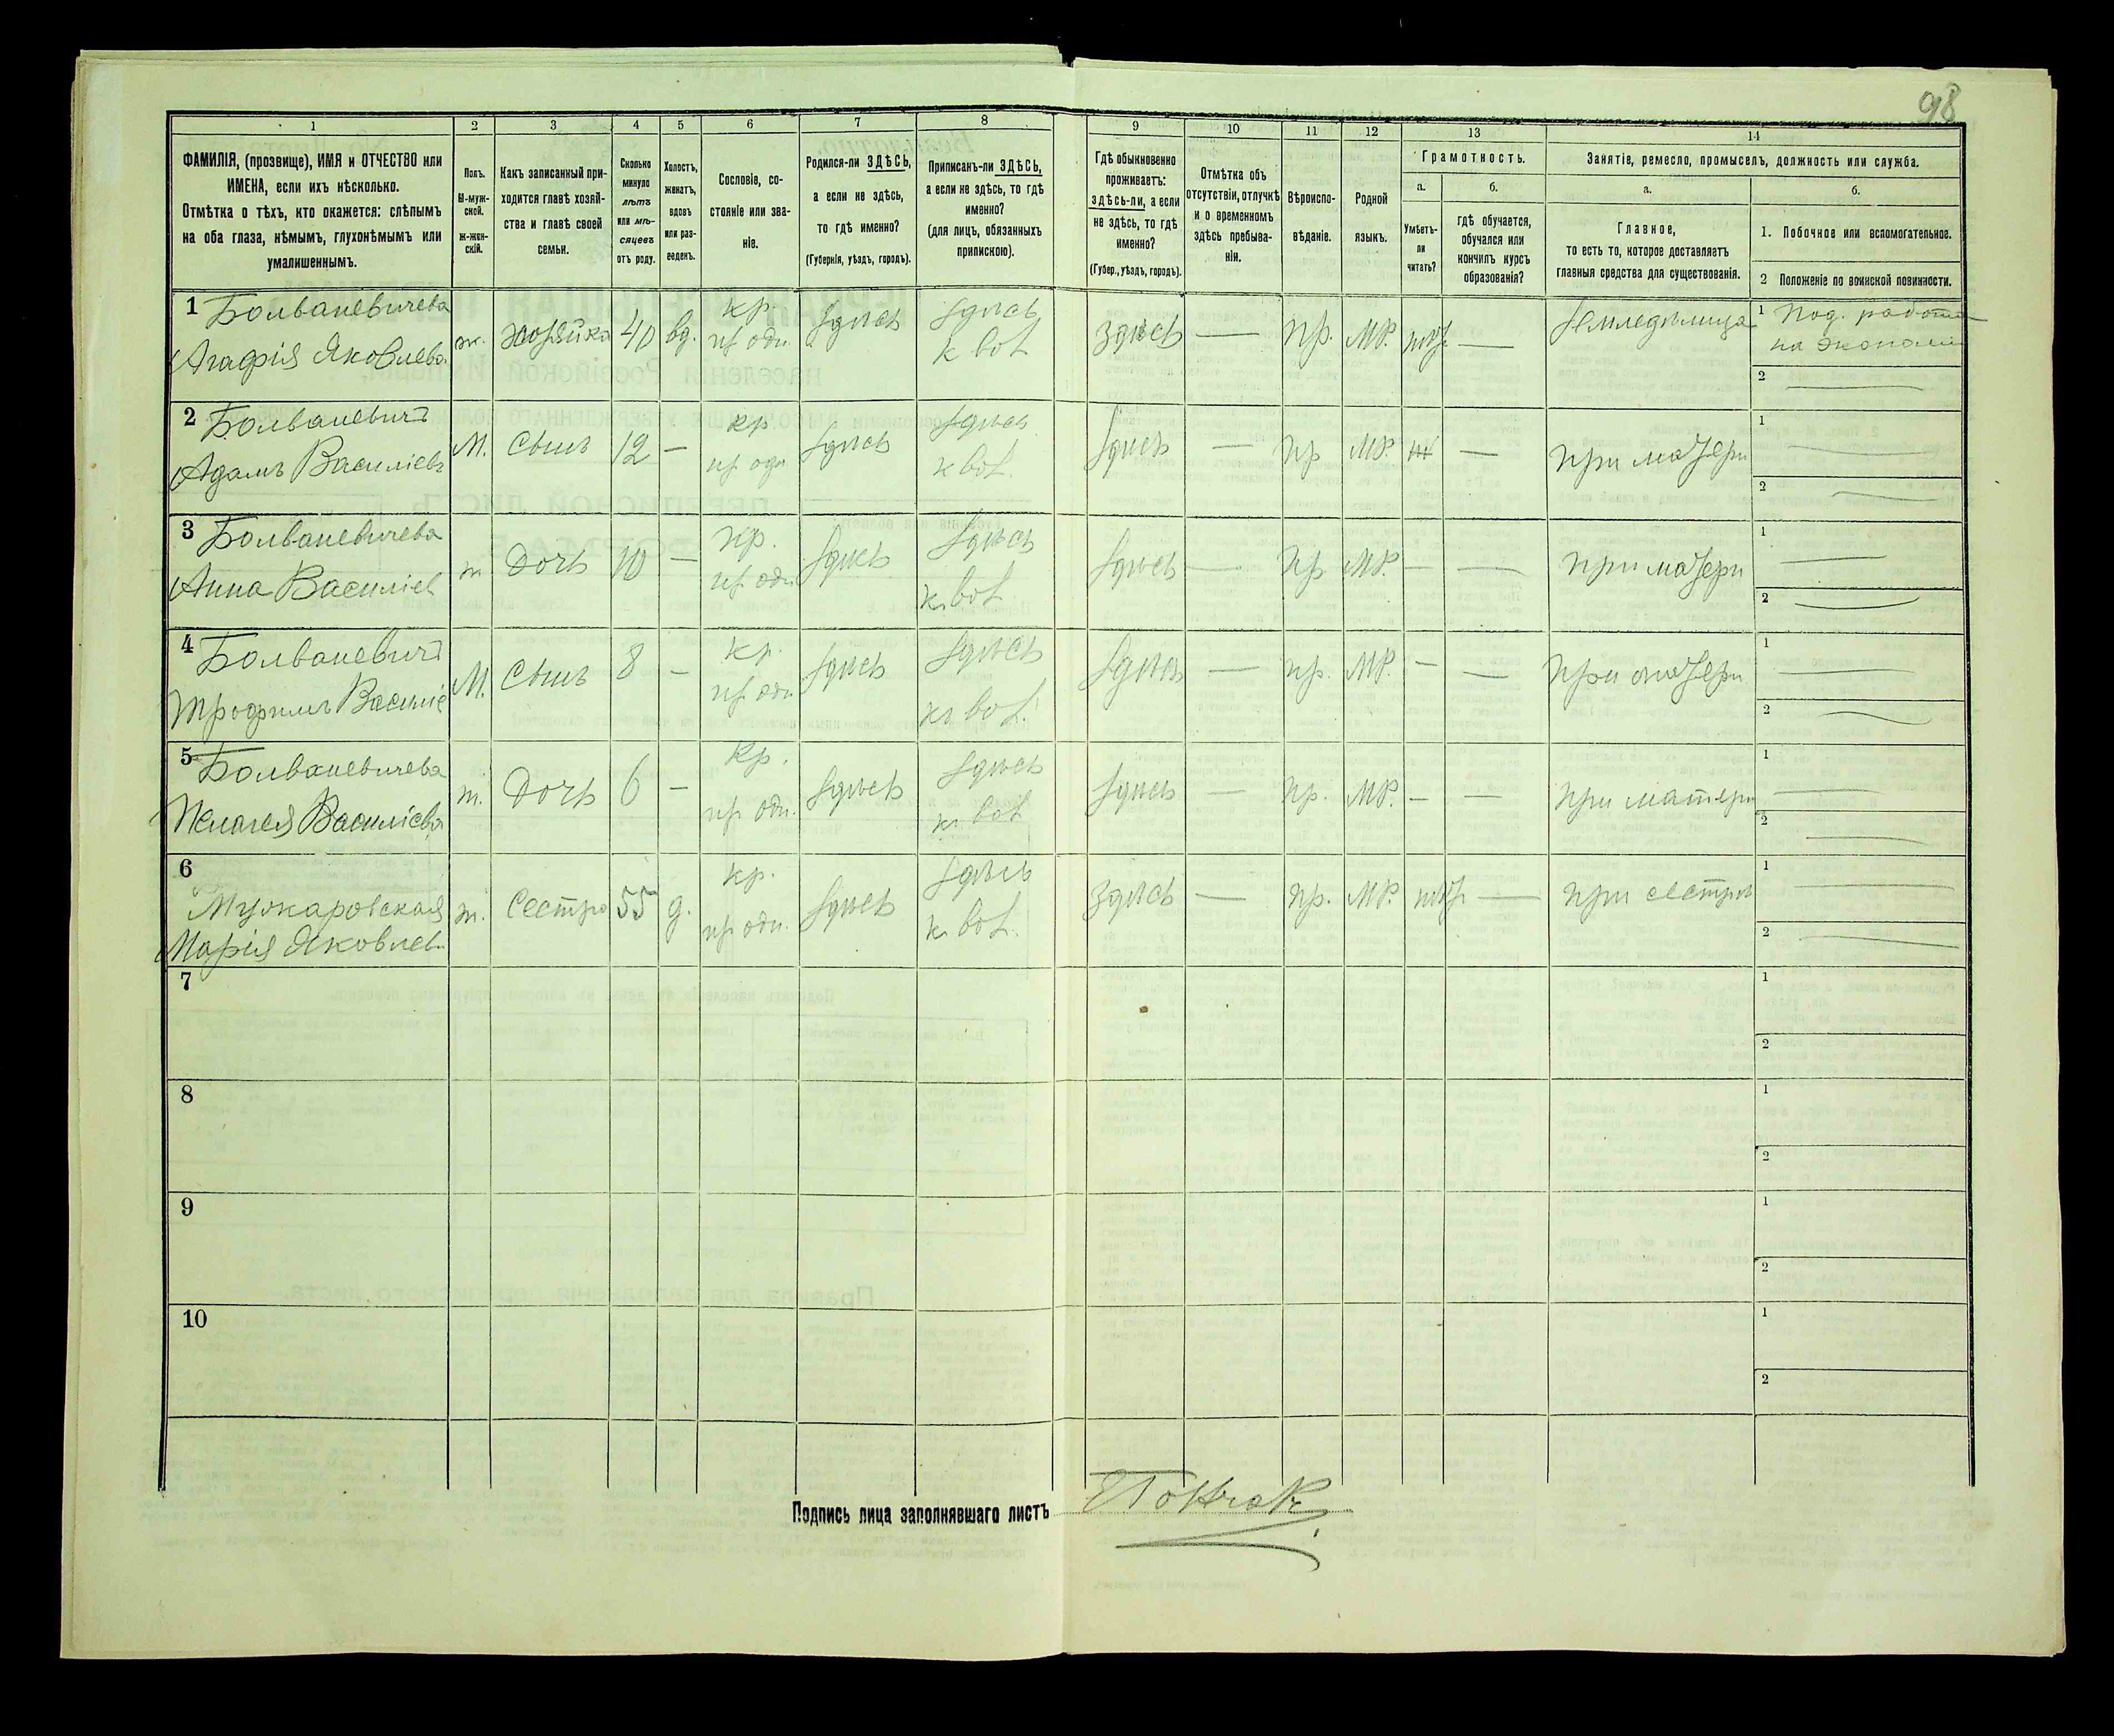 98
1 2 3 4 5 6 7 8 9 10 11 12 13 14
ФАМИЛІЯ, (прозвище), ИМЯ и ОТЧЕСТВО или
ИМЕНА, если ихъ нѣсколько.
Отмѣтка о тѣхъ, кто окажется: слѣпымъ
на оба глаза, нѣмымъ, глухонѣмымъ или
умалишеннымъ.
Полъ.
М-муж-
ской.
ж-жен-
скій.
Какъ записанный при-
ходится главѣ хозяй-
ства и главѣ своей
семьи.
Сколько
минуло
лѣтъ
или мѣ-
сяцевъ
отъ роду.
Холостъ,
женатъ,
вдовъ
или раз-
веденъ.
Сословіе, со-
стояніе или зва-
ніе.
Родился-ли ЗДѢСЬ,
а если не здѣсь,
то гдѣ именно?
(Губернія, уѣздъ, городъ).
Приписанъ-ли ЗДѢСЬ,
а если не здѣсь, то гдѣ
именно?
(для лицъ, обязанныхъ
припискою).
Гдѣ обыкновенно
проживаетъ:
здѣсь-ли, а если
не здѣсь, то гдѣ
именно?
(Губер., уѣздъ, городъ).
Отмѣтка объ
отсутствіи, отлучкѣ
и о временномъ
здѣсь пребыва-
ніи.
Вѣроиспо-
вѣданіе.
Родной
языкъ.
Грамотность.
а.
Умѣетъ-
ли
читать?
б.
гдѣ обучается,
обучался или
кончилъ курсъ
образованія?
Занятіе, ремесло, промыселъ, должность или служба.
а.
Главное,
то есть то, которое доставляетъ
главныя средства для существованія.
б.
1. Побочное или вспомогательное.
2 Положеніе по воинской повинности.
1 Болваневичева
Агафія Яковлева
ж. хозяйка 40 вд. кр. здѣсь здѣсь
здѣсь — пр. —
Земледѣлица
1 Под. работа
2 —
2 Болваневичъ
Адамъ Василіевъ
М. Сынъ 12 — кр здѣсь здѣсь
здѣсь — пр —
при матери
1 —
2 —
3 Болваневичева
Анна Василіев
ж Дочь 10 — кр. здѣсь здѣсь
здѣсь — пр — —
при матери
1 —
2 —
4 Болваневичъ
Трофимъ Василіе
М. Сынъ 8 — кр. здѣсь здѣсь
здѣсь — пр. — —
при матери
1 —
2 —
5 Болваневичева
Пелагея Василіева
ж. Дочь 6 — кр. здѣсь здѣсь
здѣсь — пр. — —
при матери
1 —
2 —
6
Марія Яковлев
ж. Сестра 55 д. кр. здѣсь здѣсь
здѣсь — пр. —
при сестрѣ
1 —
2 —
7
1
2
8
1
2
9
1
2
10
1
2
Подпись лица заполнявшаго листъ